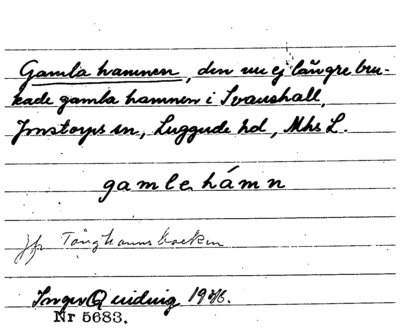 Gamla hamnen, den nu ej längre bru-
kade gamla hamnen i Svanshall,
Jonstorps sn, Luggude hd, Mhs L.
gamlehámn
jfr Tånghamnsbacken
Ingw Quidwig 1926.
Nr 5683.